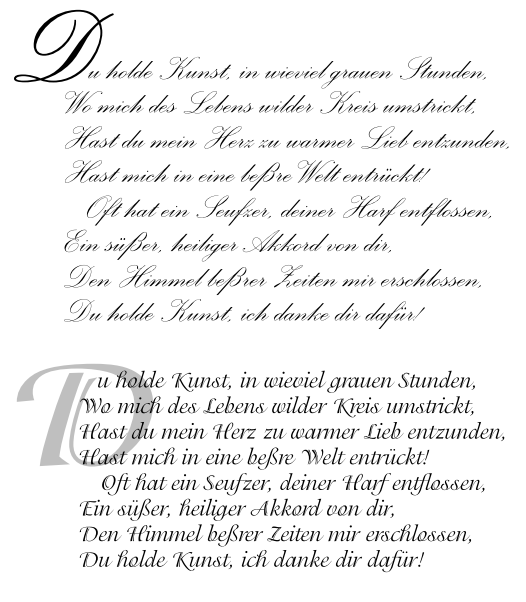 Du holde Kunst, in wieviel grauen Stunden,
Wo mich des Lebens wilder Kreis umstrickt,
Hast du mein Herz zu warmer Lieb entzunden,
Hast mich in eine beßre Welt entrückt!
Oft hat ein Seufzer, deiner Harf entflossen,
Ein süßer, heiliger Akkord von dir,
Den Himmel beßrer Zeiten mir erschlossen,
Du holde Kunst, ich danke dir dafür!
Du holde Kunst, in wieviel grauen Stunden,
Wo mich des Lebens wilder Kreis umstrickt,
Hast du mein Herz zu warmer Lieb entzunden,
Hast mich in eine beßre Welt entrückt!
Oft hat ein Seufzer, deiner Harf entflossen,
Ein süßer, heiliger Akkord von dir,
Den Himmel beßrer Zeiten mir erschlossen,
Du holde Kunst, ich danke dir dafür!